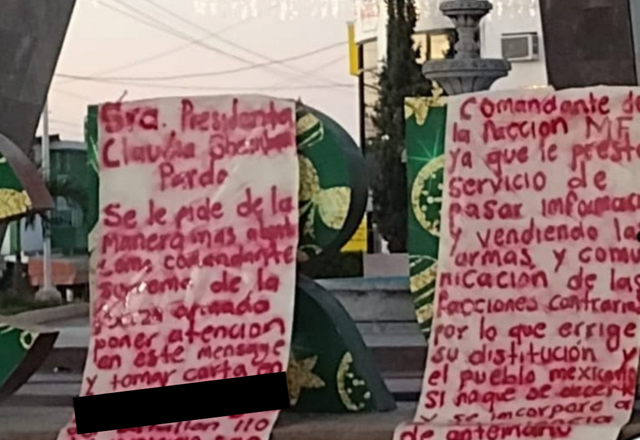 Sra. Presidenta
Claudia Sheinbaum
Pardo
Se le pide de la
manera mas atenta
como comandante
suprema de la
poner atencion
en este mensaje
y tomar carta en
Comandante de
la faccion MF
ya que le presta
servicio de
pasar informac
y vendiendo la
armas y comu
nicacion de las
facciones contraria
por lo que exige
su distitución y
el pueblo mexicano
y se incorpora a
de antemano